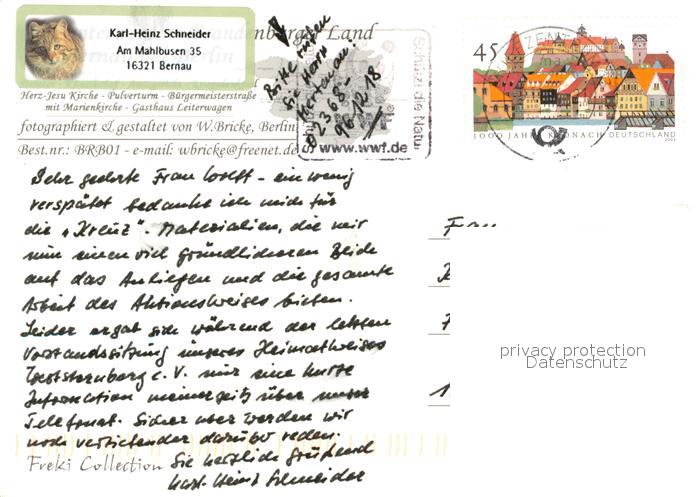 Karl-Heinz Schneider
Am Mahlbusen 35
16321 Bernau
Land
Herz-Jesu Kirche - Pulverturm - Bürgermeisterstraße
mit Marienkirche - Gasthaus Leiterwagen
fotographiert & gestaltet von W.Bricke, Berlin
Best.nr.: BRB01 - e-mail: wbricke@freenet.de
Bitte
www.wwf.de
Natur
45
1000 JAHRE KRONACH DEUTSCHLAND
2003
Sehr geehrte Frau Wolff - ein wenig
verspätet bedanke ich mich für
die "Kreuz"-Materialien, die mir
nun einen viel gründlicheren Blick
auf das Anliegen und die gesamte
Arbeit des Aktionskreises bieten.
Leider ergab sich während der letzten
Vorstandssitzung unseres Heimatkreises
Weststernberg e.V. nur eine kurze
Information meinerseits über unser
Telefonat. Sicher aber werden wir
noch vertiefender darüber reden.
Sie herzlich grüßend
Karl-Heinz Schneider
Freki Collection
Frau
privacy protection
Datenschutz